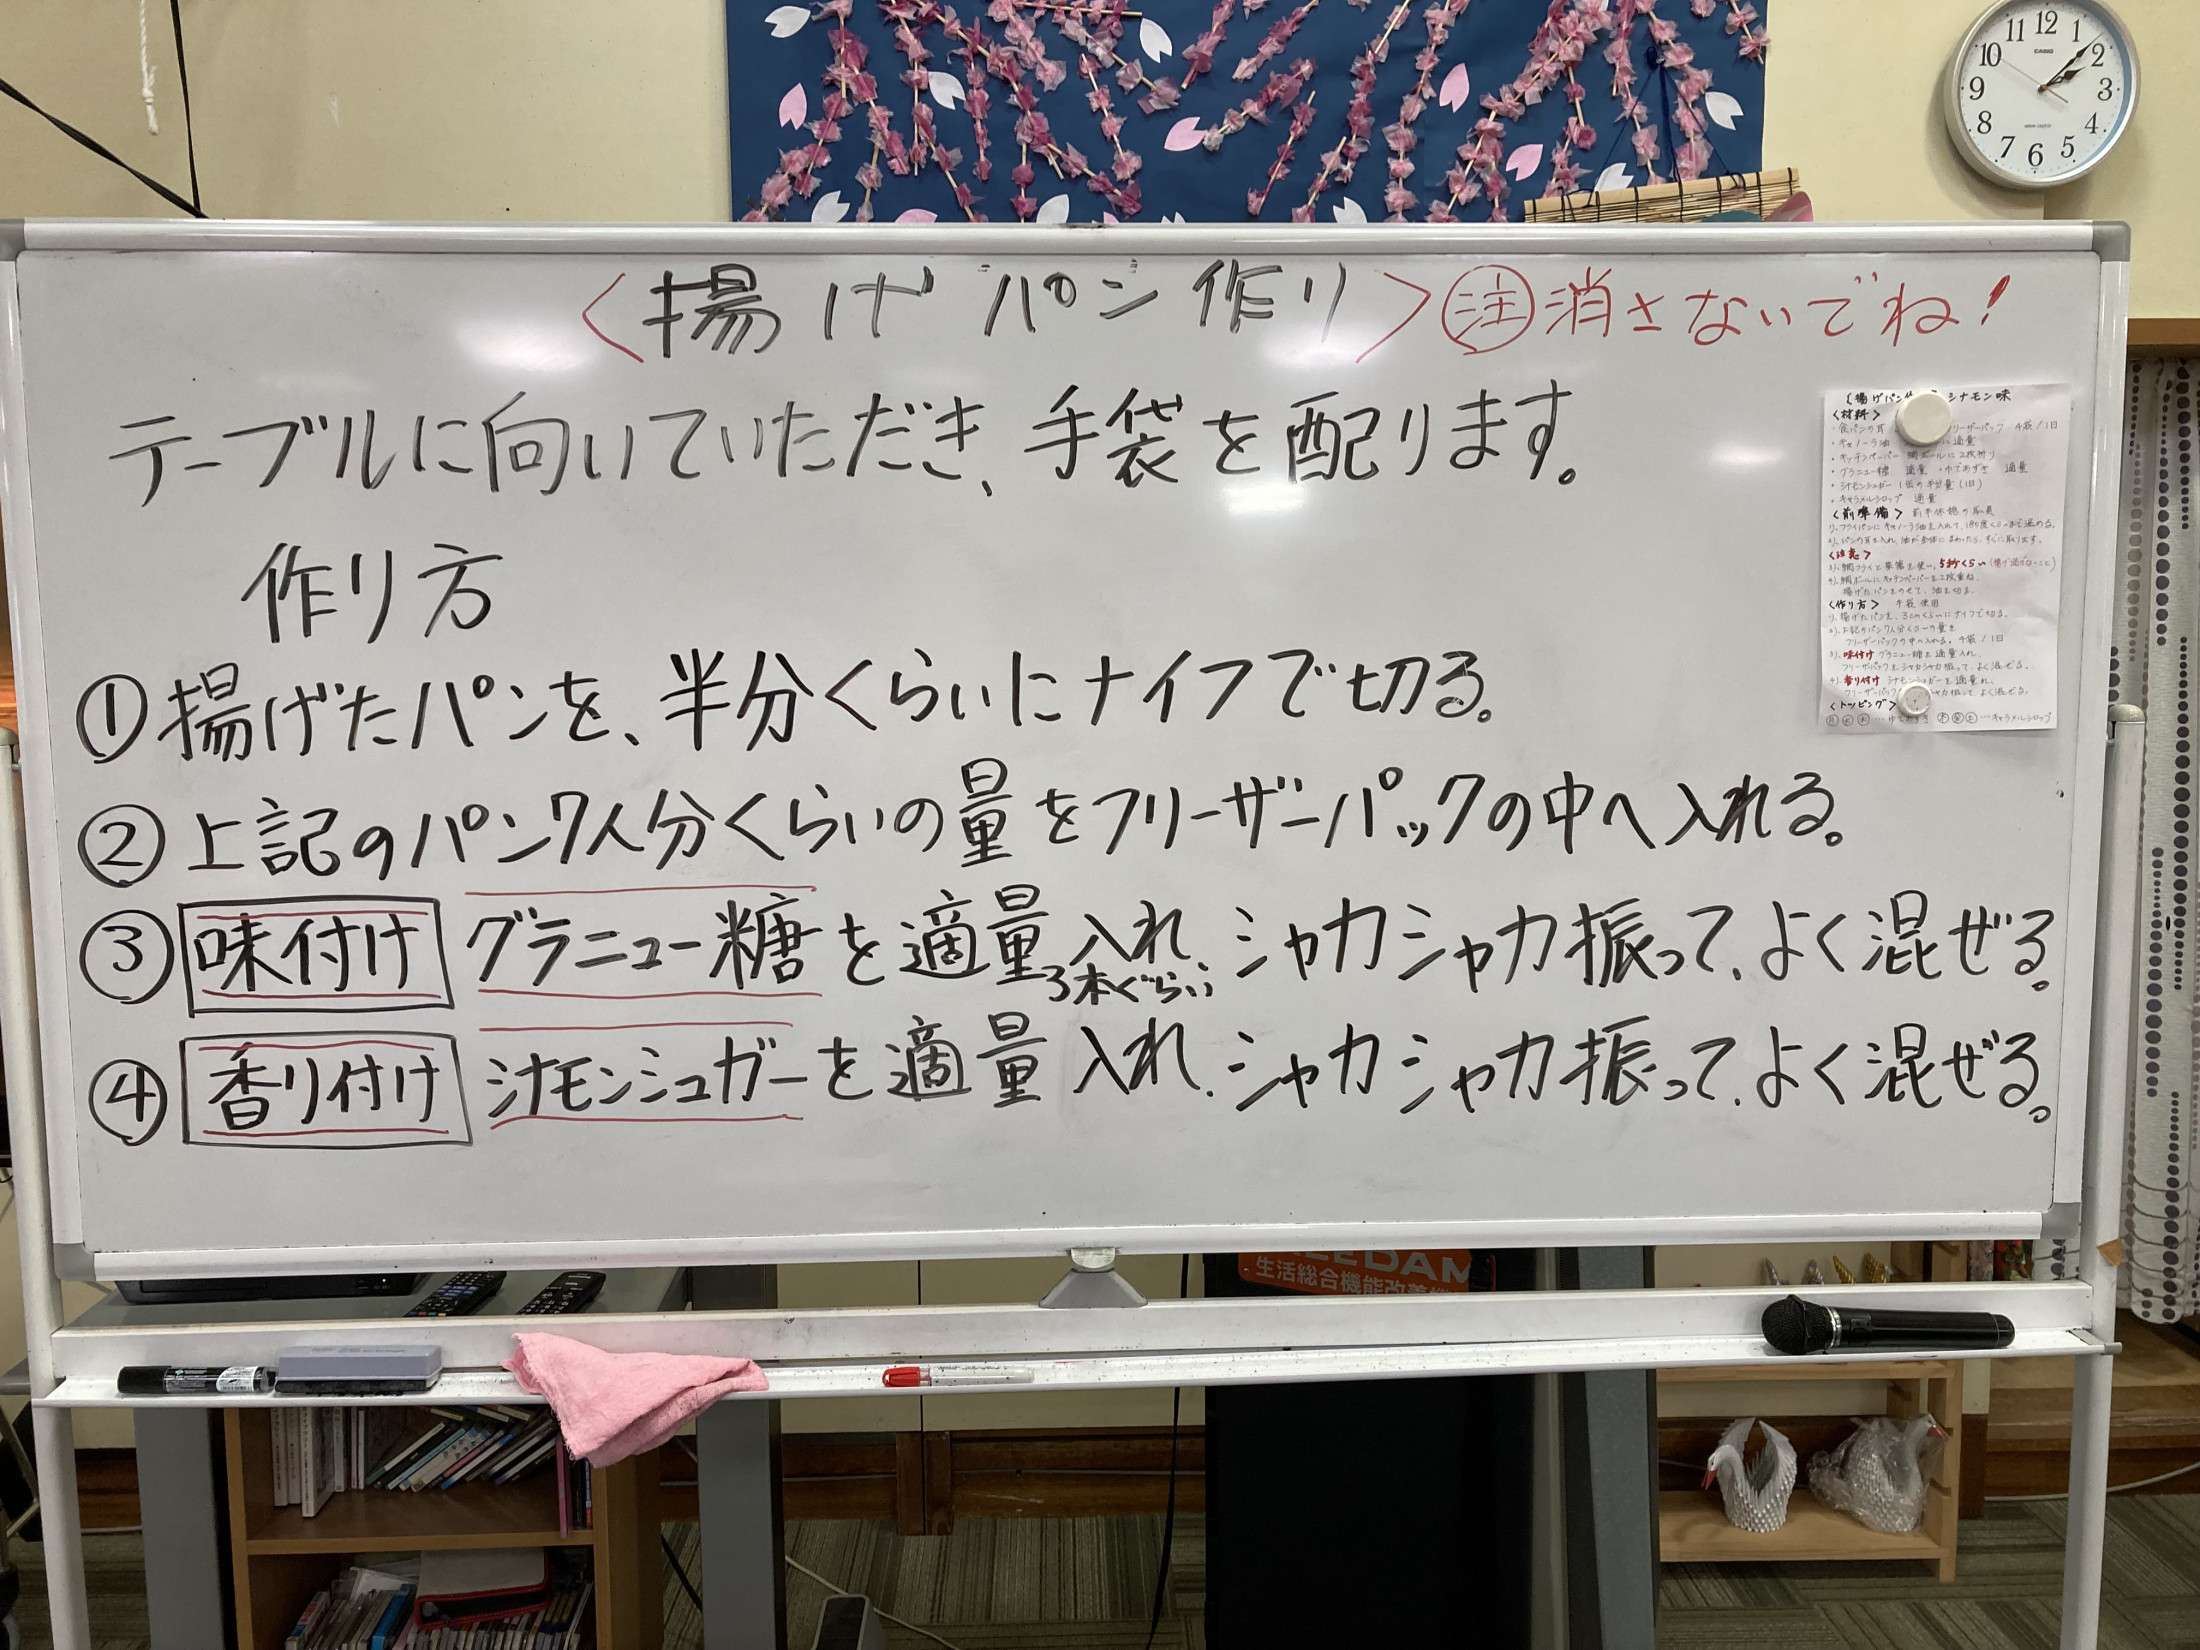 〈揚げパン作り〉㊟消さないでね!
テーブルに向いていただき、手袋を配ります。
作り方
①揚げたパンを、半分くらいにナイフで切る。
②上記のパン7人分くらいの量をフリーザーパックの中へ入れる。
③味付け グラニュー糖を適量入れ、シャカシャカ振って、よく混ぜる。
3本ぐらい
④香り付け シナモンシュガーを適量入れ、シャカシャカ振って、よく混ぜる。
シナモン味
〈材料〉
・食パンの耳 4袋/1日
・キャノーラ油 適量
・キッチンペーパー 網ボールに2枚折り
・グラニュー糖 適量 ・ゆであずき 適量
・シナモンシュガー 1缶の半分量(1日)
・キャラメルシロップ 適量
〈前準備〉
1).フライパンにキャノーラ油を入れて、180度くらいまで温める。
2).パンの耳を入れ、油が全体にまわったら、すぐに取り出す。
〈注意〉
5秒くらい
4).網ボールにキッチンペーパーを2枚重ね、
揚げたパンをのせて、油を切る。
〈作り方〉 手袋使用
1).揚げたパンを、3cmくらいにナイフで切る。
2).上記のパン7人分くらいの量を
フリーザーパックの中へ入れる。4袋/1日
3).味付け グラニュー糖を適量入れ、
フリーザーパックをシャカシャカ振って、よく混ぜる。
4).香り付け シナモンシュガーを適量入れ、
フリーザーパック 振って、よく混ぜる。
〈トッピング〉
㊊㊋㊌…ゆであずき ㊍㊎㊏…キャラメルシロップ
CASIO
12 1 2 3 4 5 6 7 8 9 10 11
生活総合機能改善